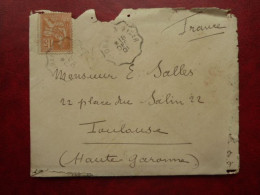 France
Monsieur E. Salles
22 place du Salin 22
Toulouse
(Haute Garonne)